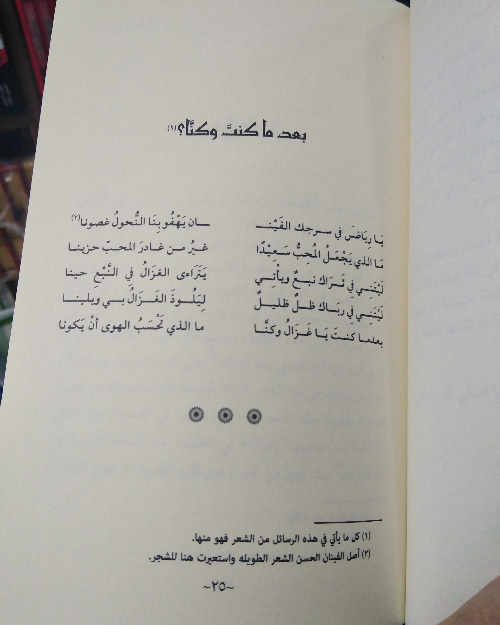 بعد ما كنتَ وكنَّا؟(١)
يَا رِيَاضَ في سرجك الفَيْنـ ـان يَهْفُو بِنَا النُّحولُ غصونا(٢)
مَا الذي يَجْعَلُ المُحِبُّ سَعِيْدًا غيرُ من غادرَ المحبّ حزينا
لَيْتَنِي في ثَرَاك نبعٌ ويأتِي يَتَرَاءى الغزَالُ فِي النَّبْعِ حينا
لَيْتَنِي في ربَاك ظلٌ ظليلٌ لِيَلُوذَ الغَزَالُ بي ويلينا
بعدما كنتَ يَا غَزَالُ وكنَّا ما الذي تَحْسَبُ الهوى أنْ يَكونا
(١) كل ما يأتي في هذه الرسائل من الشعر فهو منها.
(٢) أصل الفينان الحسن الشعر الطويله واستعيرت هنا للشجر.
~٢٥~